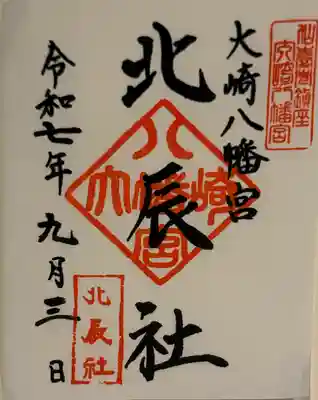 大崎八幡宮
北辰社
令和七年九月三日
八幡宮
大崎
北辰社